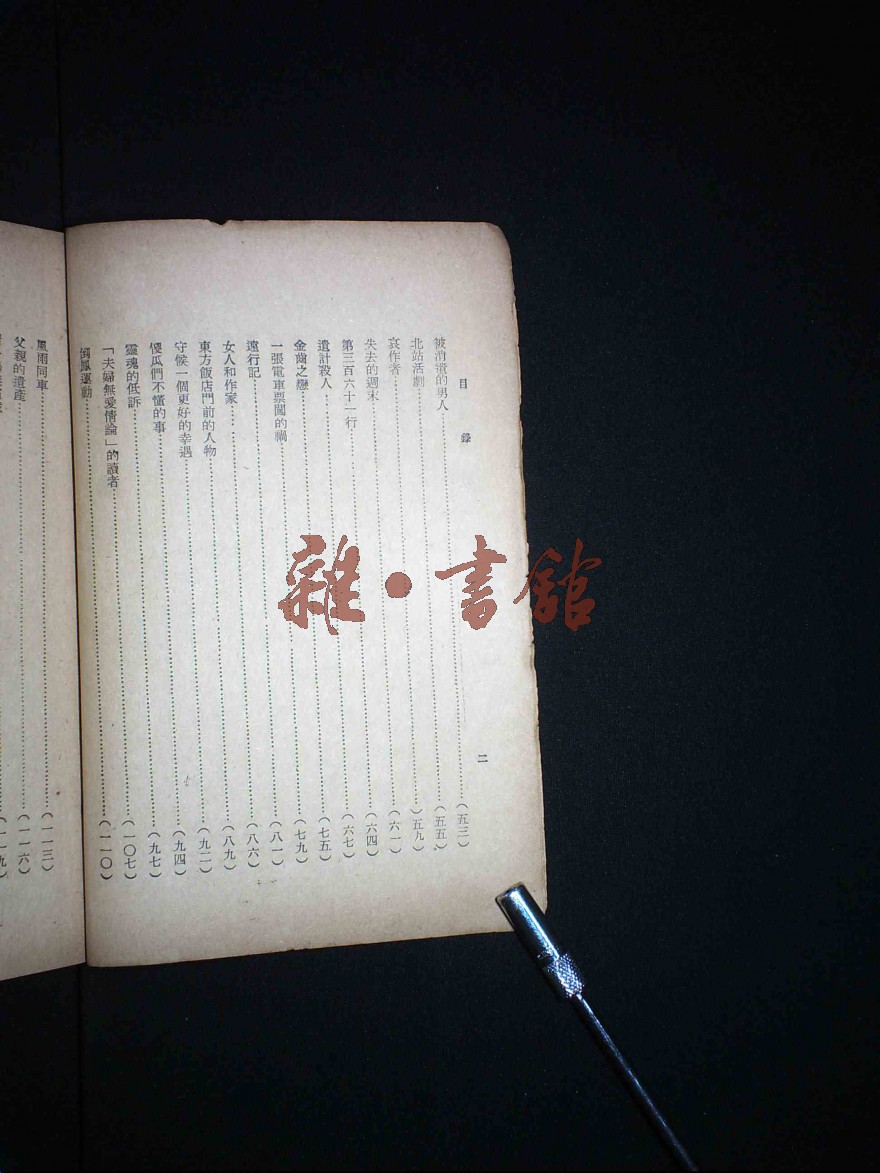 目錄
二
被消遣的男人……（五三）
北站活劇……（五五）
哀作者……（五九）
失去的週末……（六一）
第三百六十一行……（六四）
遺計殺人……（六七）
金齒之戀……（七五）
一張電車票闖的禍……（七九）
遠行記……（八一）
女人和作家……（八六）
東方飯店門前的人物……（八九）
守候一個更好的幸遇……（九二）
傻瓜們不懂的事……（九四）
靈魂的低訴……（九七）
「夫婦無愛情論」的讀者……（一〇七）
倒鳳運動……（一一〇）
風雨同車……（一一三）
父親的遺產……（一一六）
（一一九）
雜·書館